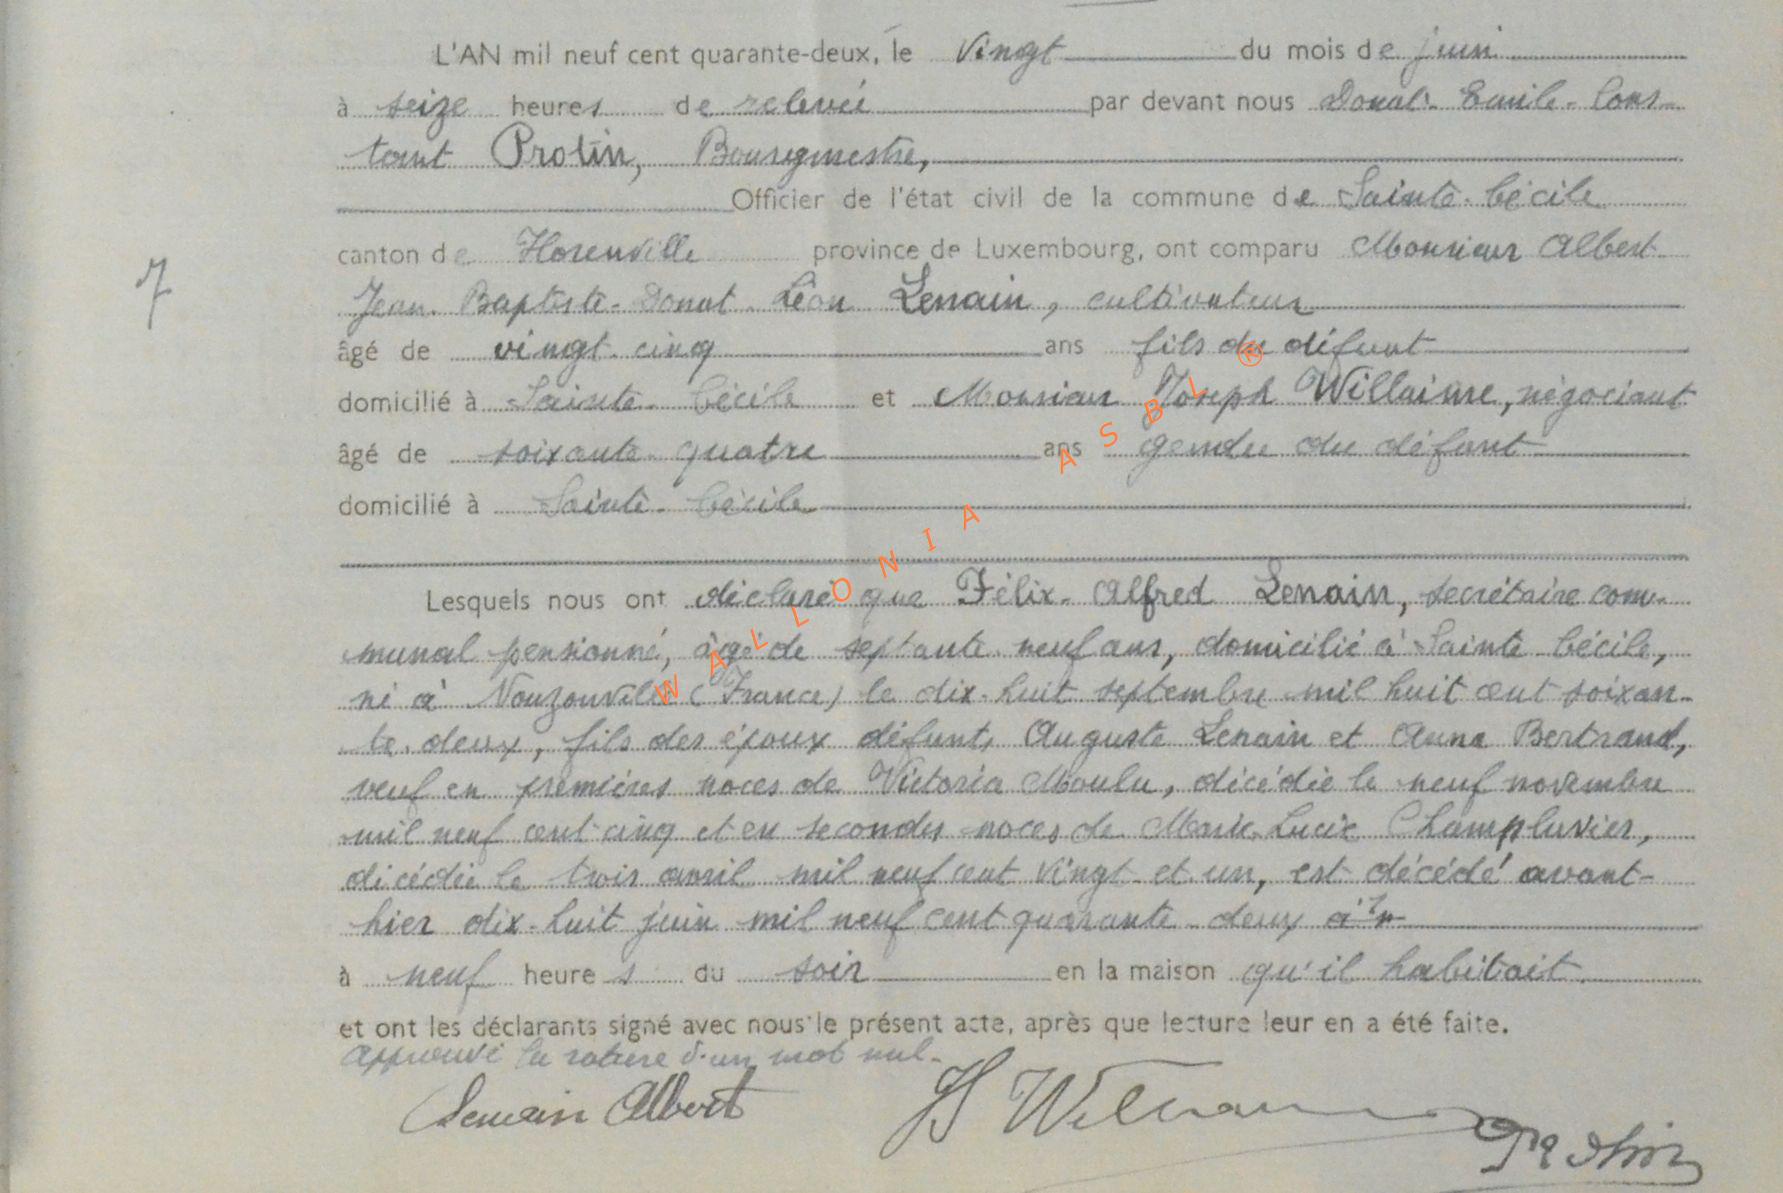 L'AN mil neuf cent quarante-deux, le vingt du mois de juin
à seize heures de relevée par devant nous Donat-Emile-Cons-
tant Protin, Bourgmestre,
Officier de l'état civil de la commune de Sainte-Cécile
canton de Florenville province de Luxembourg, ont comparu Monsieur Albert-
Jean-Baptiste-Donat-Léon Lenain, cultivateur
7
âgé de vingt-cinq ans fils du défunt
domicilié à Sainte-Cécile et Monsieur Joseph Willaime, négociant
âgé de soixante-quatre ans gendre du défunt
domicilié à Sainte-Cécile
Lesquels nous ont déclaré que Félix-Alfred Lenain, secrétaire com-
munal pensionné, âgé de septante neuf ans, domicilié à Sainte-Cécile,
né à Nouzonville (France) le dix-huit septembre mil huit cent soixan-
te-deux, fils des époux défunts Auguste Lenain et Anna Bertrand,
veuf en premières noces de Victoria Moulu, décédée le neuf novembre
mil neuf cent cinq et en secondes noces de Marie-Lucie Champluvier,
décédée le trois avril mil neuf cent vingt-et-un, est décédé avant-
hier dix-huit juin mil neuf cent quarante-deux
à neuf heures du soir en la maison qu'il habitait.
et ont les déclarants signé avec nous le présent acte, après que lecture leur en a été faite.
Approuvé la rature d'un mot nul.
Lenain Albert
Protin
WALLONIA ASBL ®